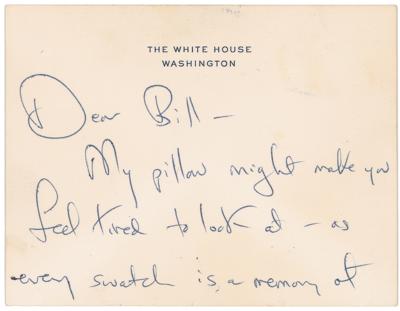 THE WHITE HOUSE
WASHINGTON
Dear Bill —
My pillow might make you
feel tired to look at — as
every swatch is a memory of